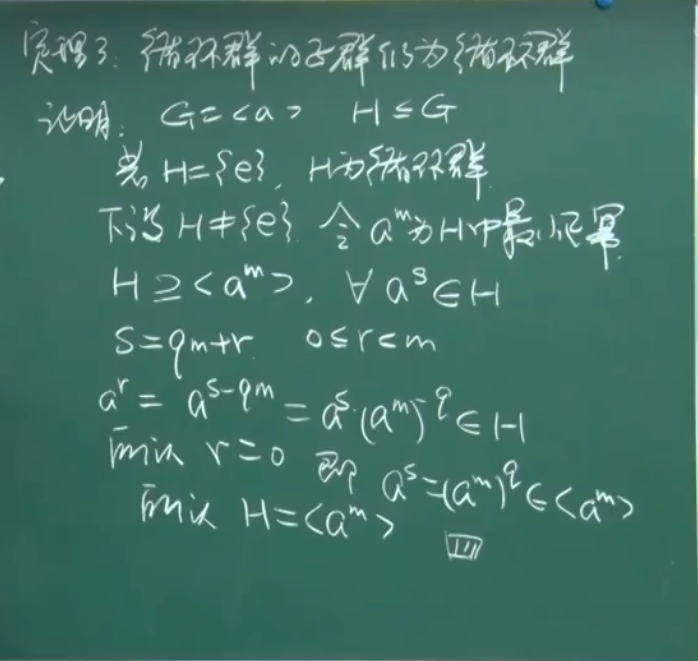 定理3: 循环群的子群仍为循环群
证明: G=<a> H≤G
若 H={e}, H为循环群
下设 H≠{e}. 令 a^m 为H中最小正幂.
H⊇<a^m>, ∀ a^s∈H
s=qm+r. 0≤r<m
a^r = a^{s-qm} = a^s·(a^m)^{-q} ∈ H
所以 r=0 即 a^s=(a^m)^q∈<a^m>
所以 H=<a^m>